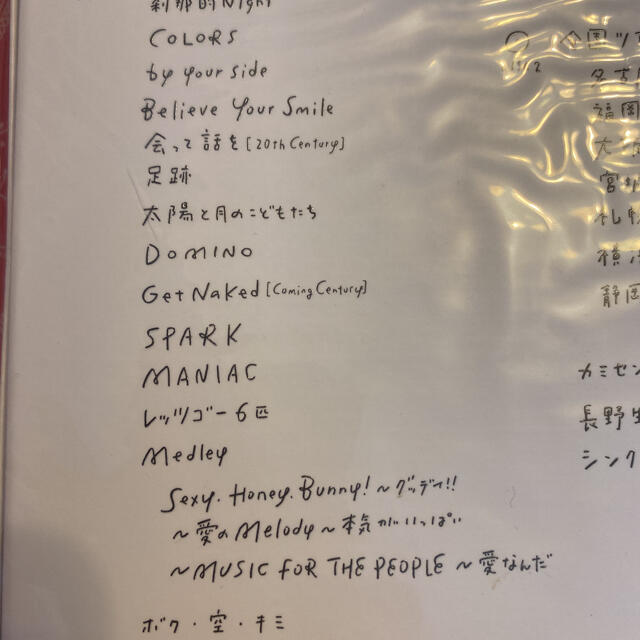 刹那的Night
COLORS
by your side
Believe Your Smile
会って話を [20th Century]
足跡
太陽と月のこどもたち
DOMINO
Get Naked [Coming Century]
SPARK
MANIAC
レッツゴー6匹
Medley
Sexy. Honey. Bunny! ~グッデイ!!
~愛のMelody~本気がいっぱい
~MUSIC FOR THE PEOPLE ~愛なんだ
ボク・空・キミ
全国ツ
名古
福岡
大
宮
札幌
横
静岡
カミセン
長野
シンク